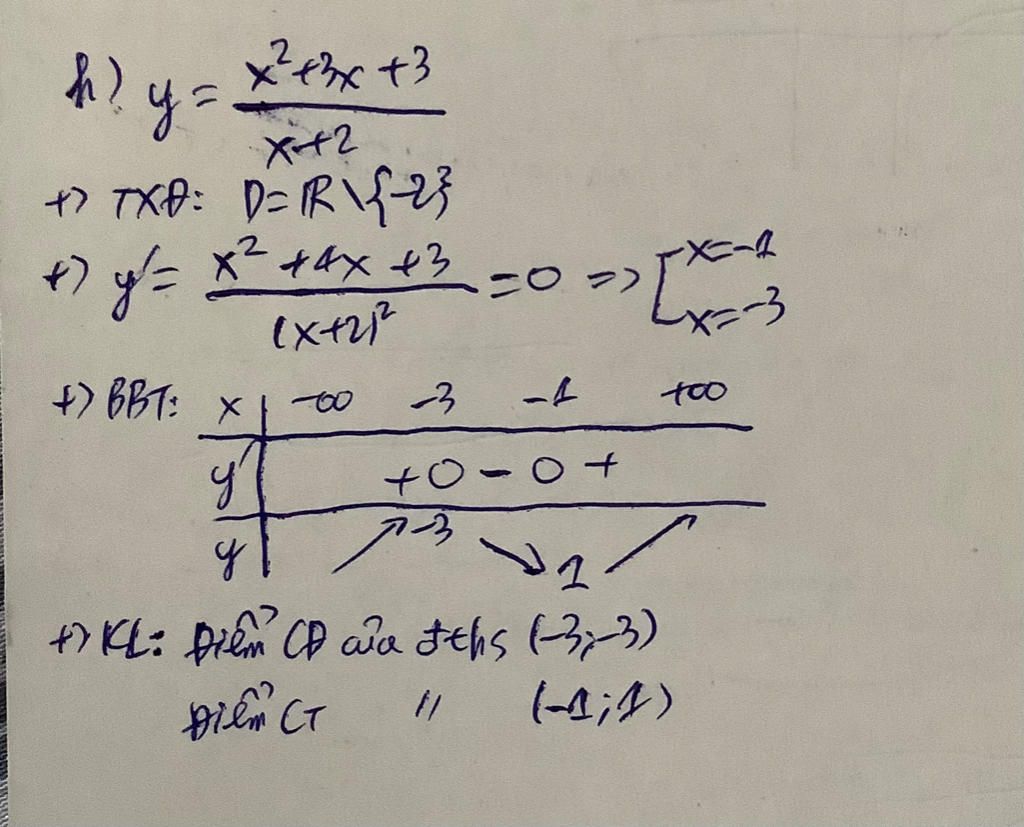 h) y = (x²+3x+3)/(x+2)
+) TXĐ: D=ℝ\{-2}
+) y' = (x²+4x+3)/(x+2)² =0 => [x=-1
x=-3
+) BBT: x | -∞ -3 -1 +∞
y' | +0-0+
y | ↗ -3 ↘ 1 ↗
+) KL: Điểm CĐ của đths (-3;-3)
Điểm CT " (-1;1)